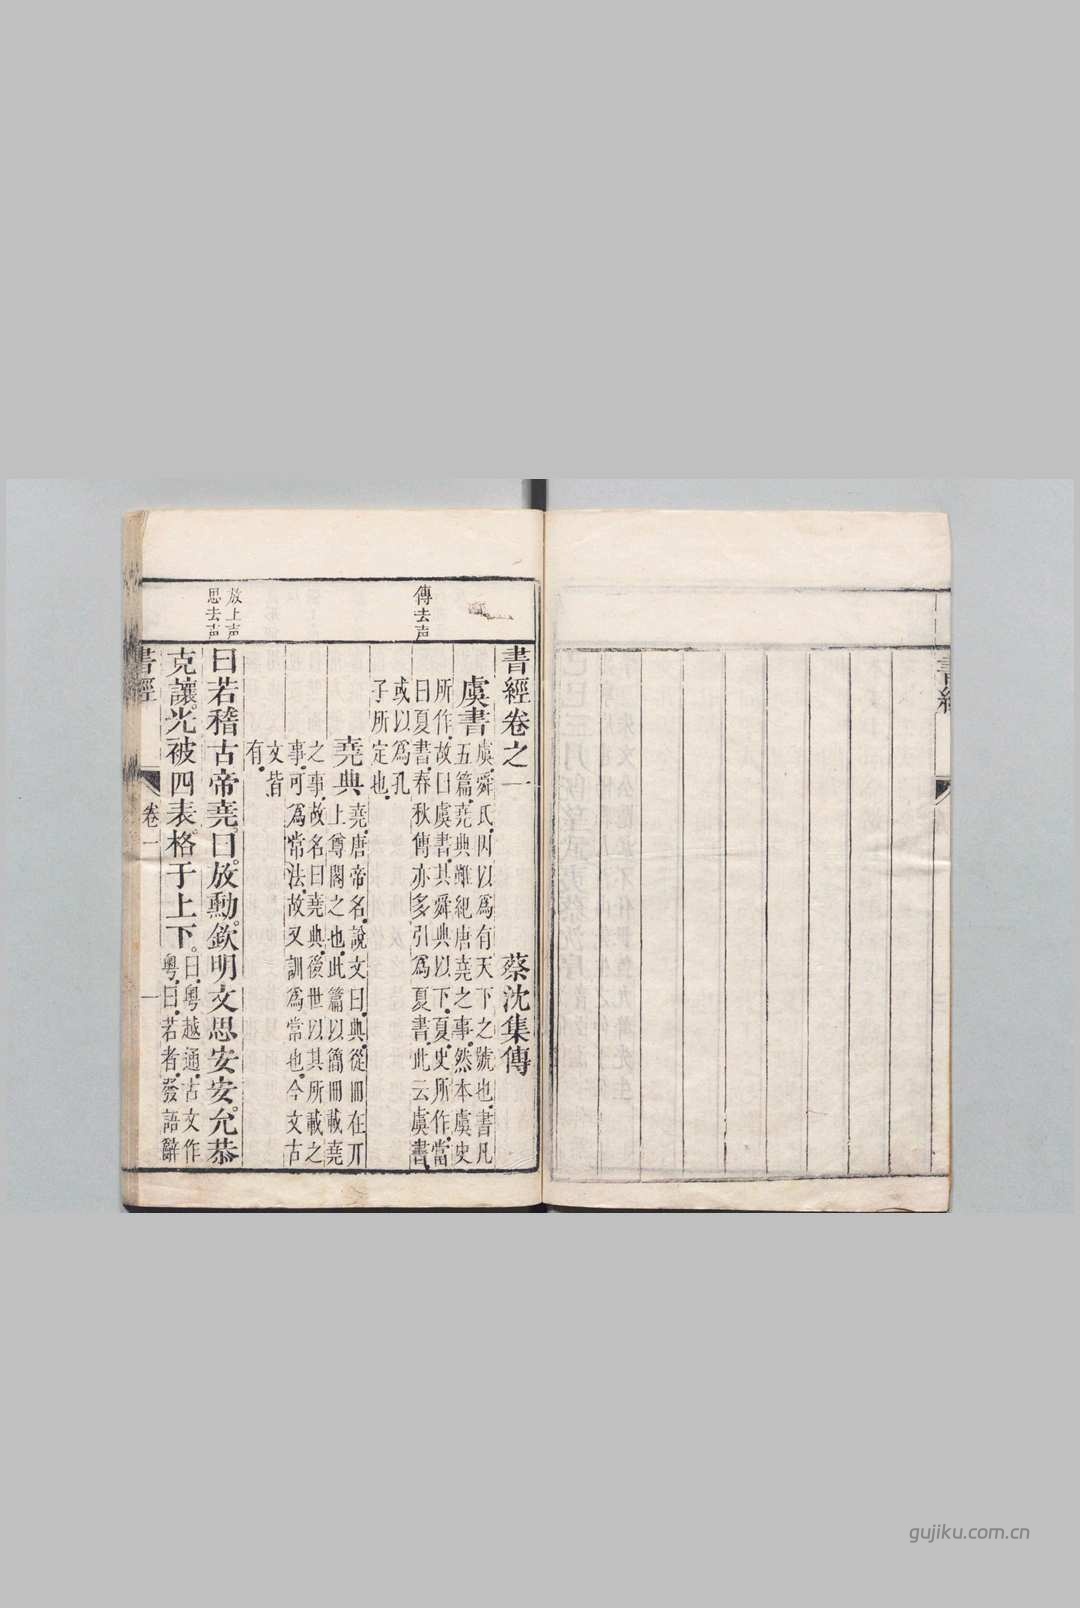 傳去声
放上声
思去声
書經卷之一 蔡沈集傳
虞書 虞舜氏因以爲有天下之號也.書凡
五篇.堯典雖紀唐堯之事.然本虞史
所作.故曰虞書.其舜典以下.夏史所作.當
曰夏書.春秋傳亦多引爲夏書.此云虞書.
或以爲孔
子所定也.
堯典 堯.唐帝名.說文曰.典.從冊在丌
上.尊閣之也.此篇以簡冊載堯
之事.故名曰堯典.後世以其所載之
事.可爲常法.故又訓爲常也.今文古
文皆
有.
曰若稽古帝堯.曰放勳.欽明文思安安.允恭
克讓.光被四表.格于上下.
曰.粵越通.古文作
粵.曰若者.發語辭
書經 卷一 一
書經
gujiku.com.cn